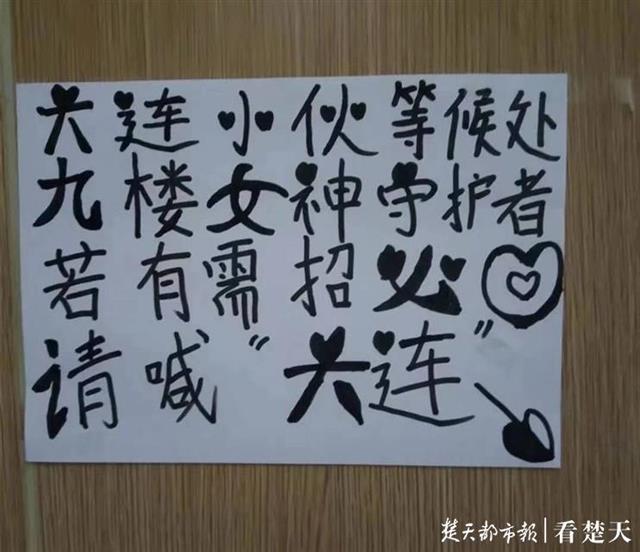 大连小伙等候处
九楼女神守护者
若有需招必
请喊"大连"
楚天都市报|看楚天